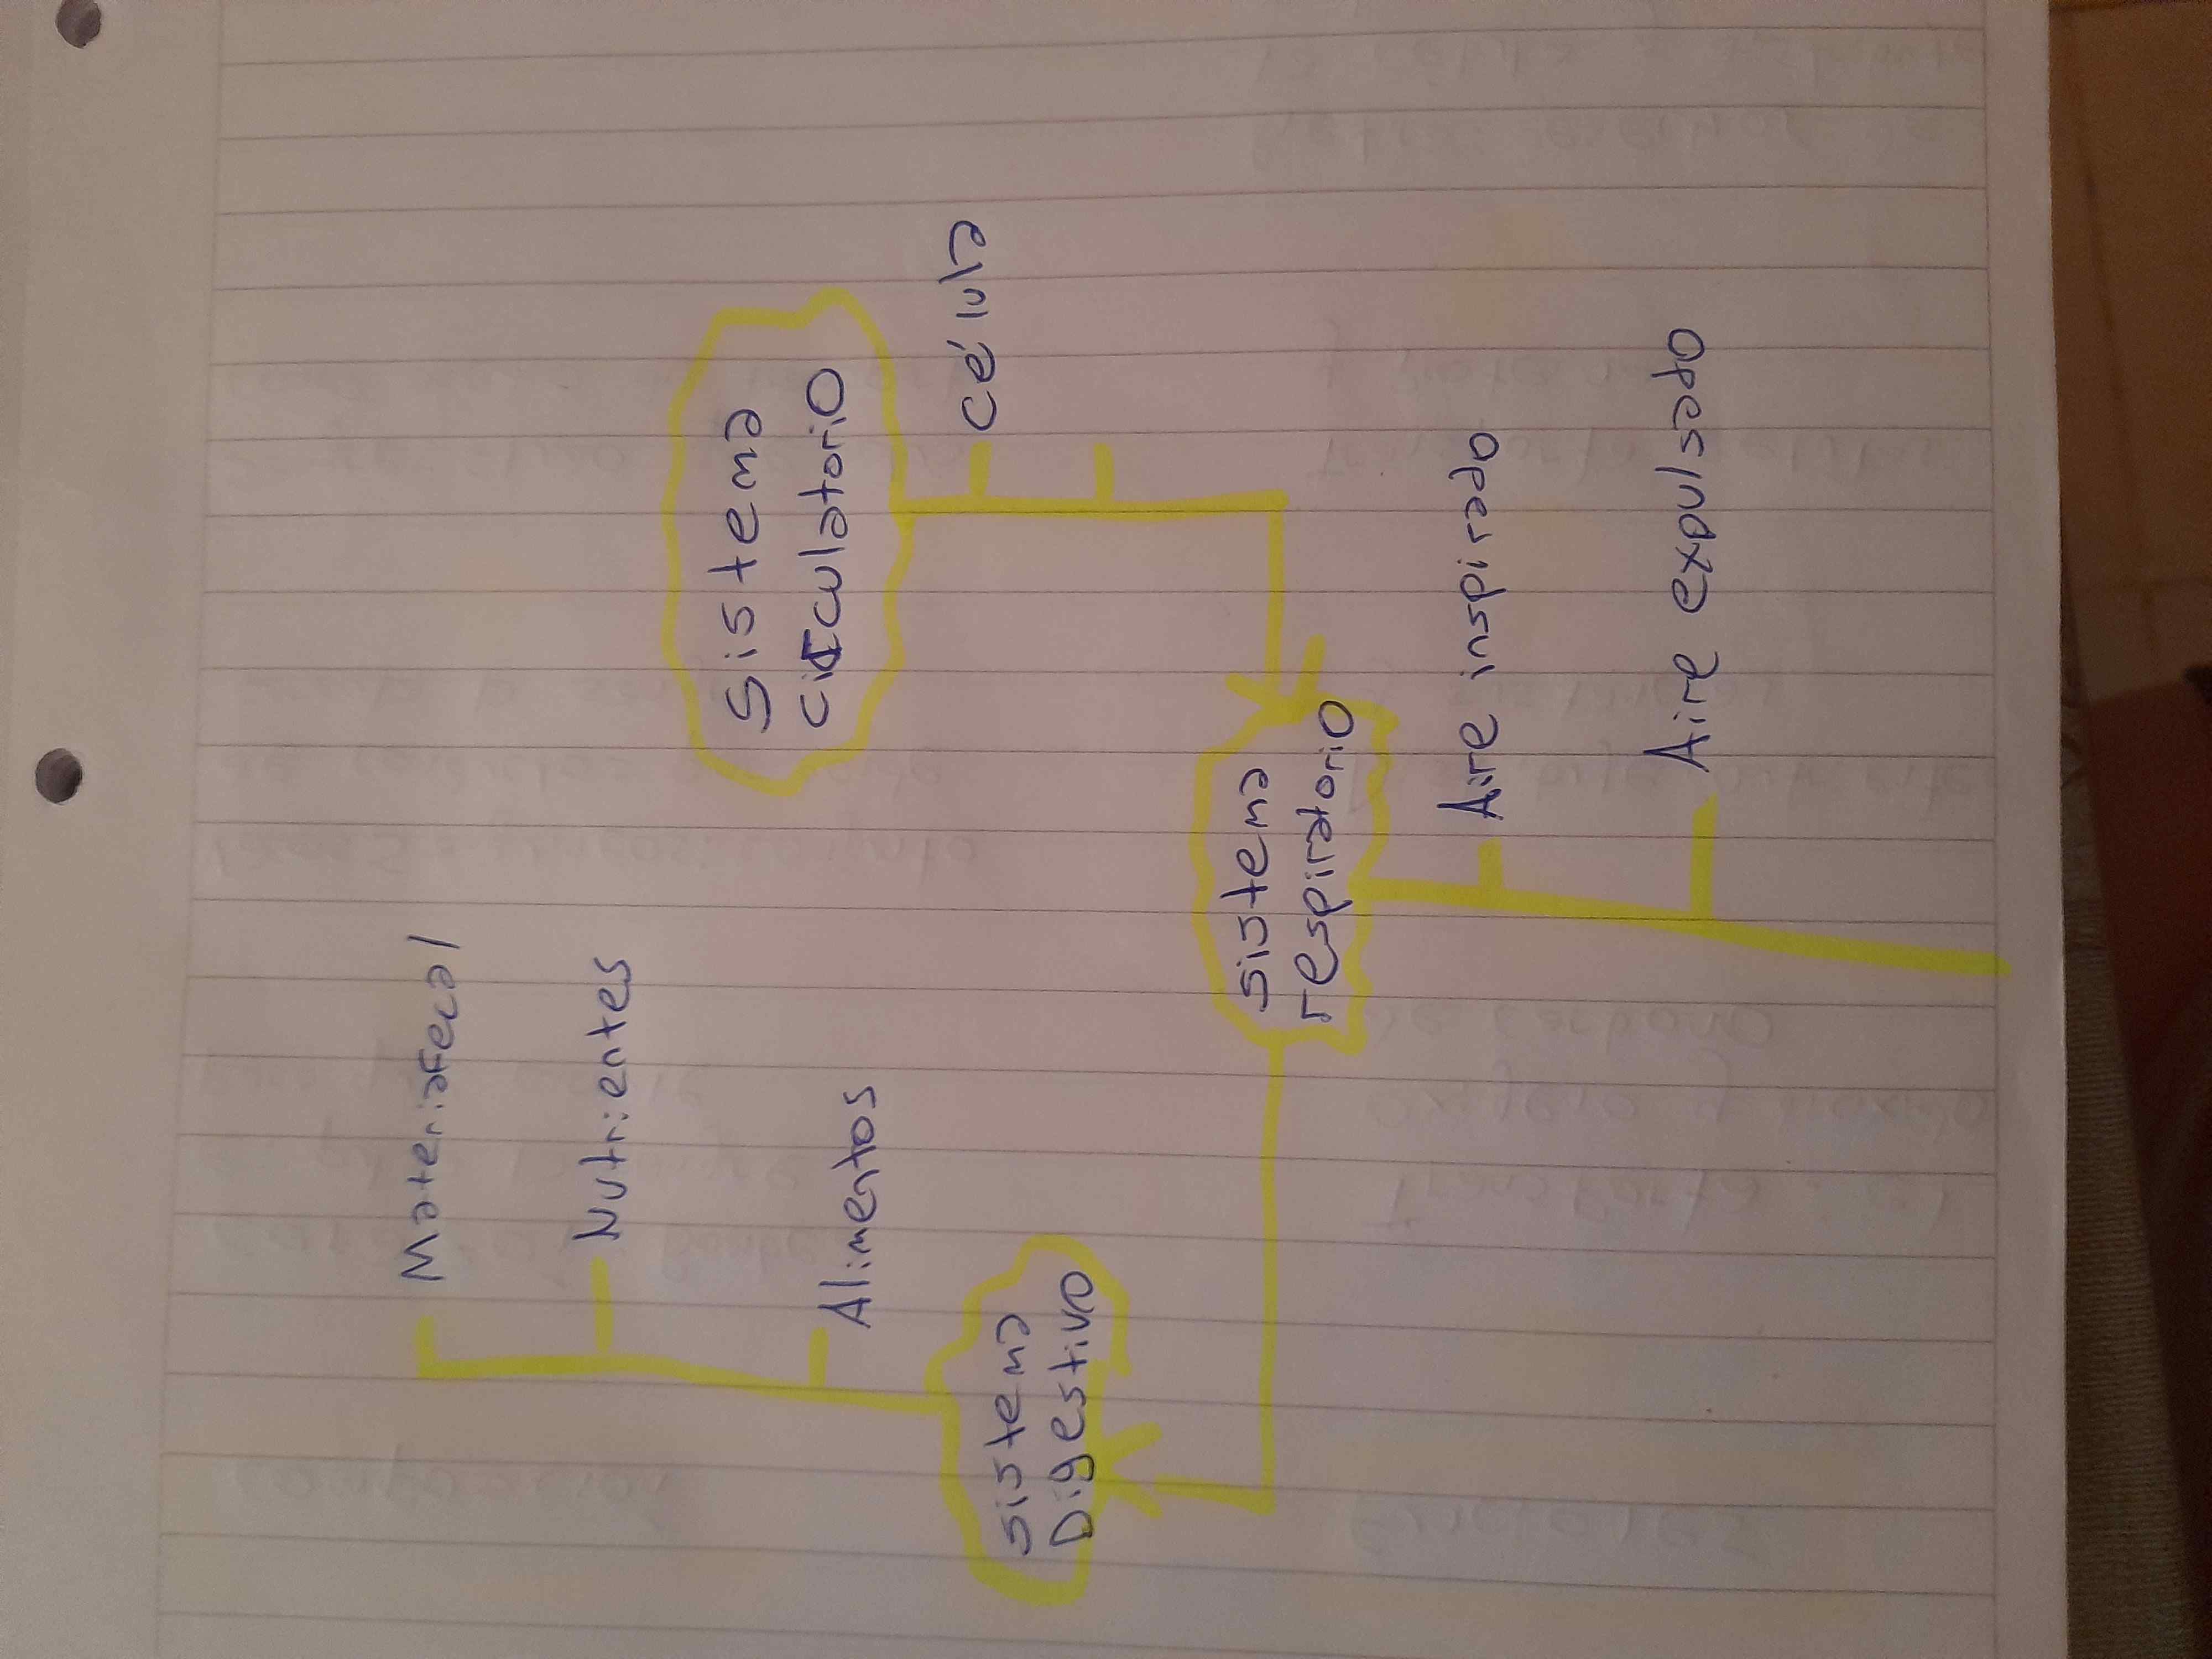 Materia Fecal
Nutrientes
Alimentos
Sistema
Digestivo
Sistema
circulatorio
célula
Sistema
respiratorio
Aire inspirado
Aire expulsado